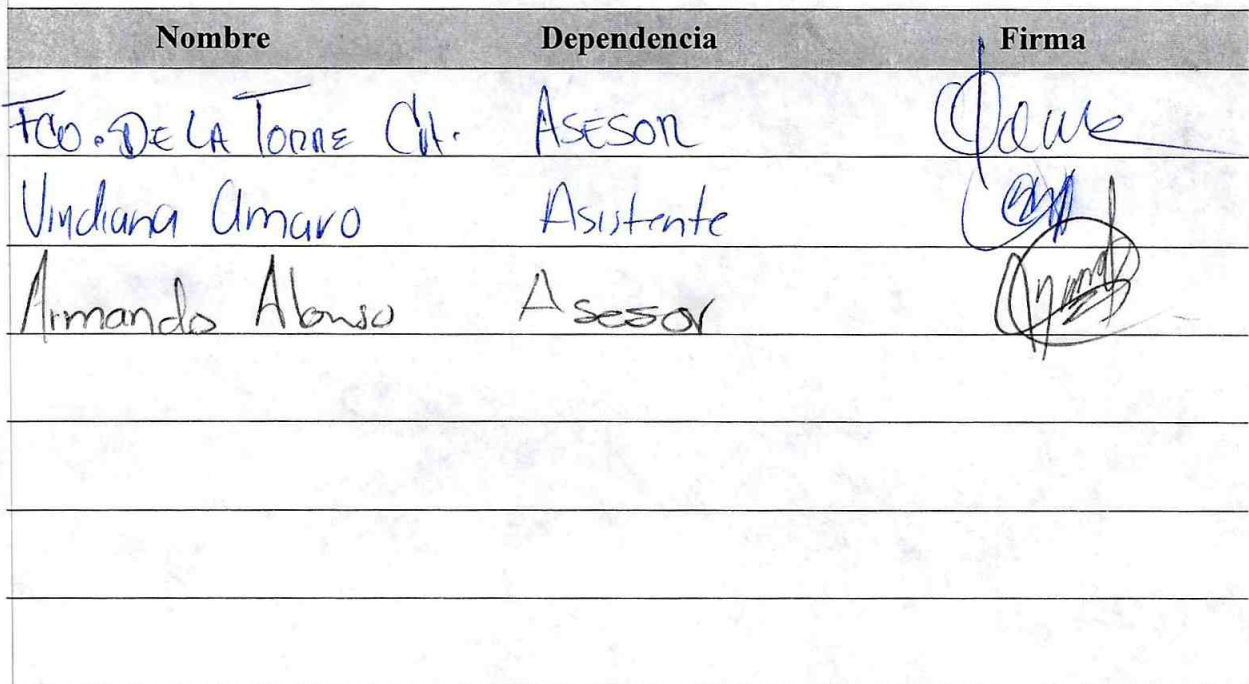 Nombre Dependencia Firma
FCO. DE LA TORRE ASESOR
Viridiana Amaro Asistente
Armando Alonso Asesor